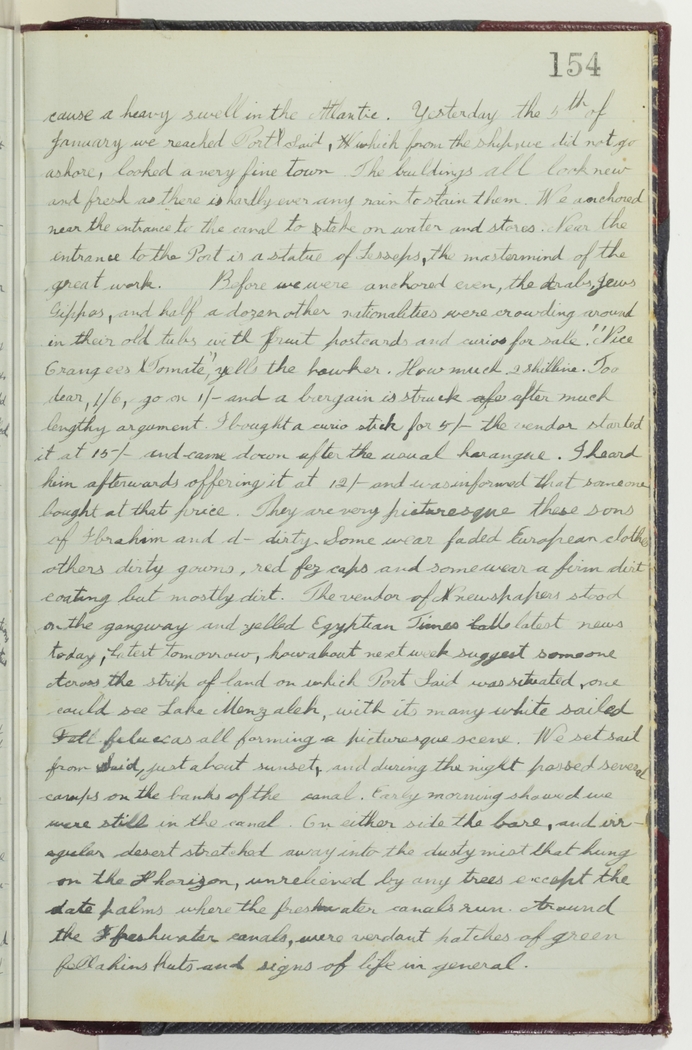 154
cause a heavy swell in the Atlantic. Yesterday the 5th of
January we reached Port Said, which from the ship, we did not go
ashore, looked a very fine town. The buildings all look new
and fresh as there is hardly ever any rain to stain them. We anchored
near the entrance to the canal to take on water and stores. Near the
entrance to the Port is a statue of Lesseps, the mastermind of the
great work. Before we were anchored even, the Arabs, Jews
Gippos, and half a dozen other nationalities were crowding around
in their old tubs with fruit postcards and curios for sale. "Nice
Orangees & Tomate", yells the hawker. How much 2 shilline. Too
dear, 1/6, go on 1/- and a bargain is struck after much
lengthy argument. I bought a curio stick for 5/- the vendor started
it at 15/- and came down after the usual harangue. I heard
him afterwards offering it at 12/- and was informed that someone
bought at that price. They are very picturesque these sons
of Ibrahim and d- dirty. Some wear faded European clothe
others dirty gowns, red fez caps and some wear a firm dirt
coating but mostly dirt. The vendor of newspapers stood
on the gangway and yelled Egyptian Times latest news
today, latest tomorrow, how about next week suggest someone
Across the strip of land on which Port Said was situated, one
could see Lake Menzaleh, with its many white sailed
feluccas all forming a picturesque scene. We set sail
from Said, just about sunset, and during the night passed several
camps on the banks of the canal. Early morning showed we
were still in the canal. On either side the bare, and irr-
egular desert stretched away into the dusty mist that hung
on the horizon, unrelieved by any trees except the
date palms where the freshwater canals run. Around
the freshwater canals, were verdant patches of green
fellahins huts and signs of life in general.